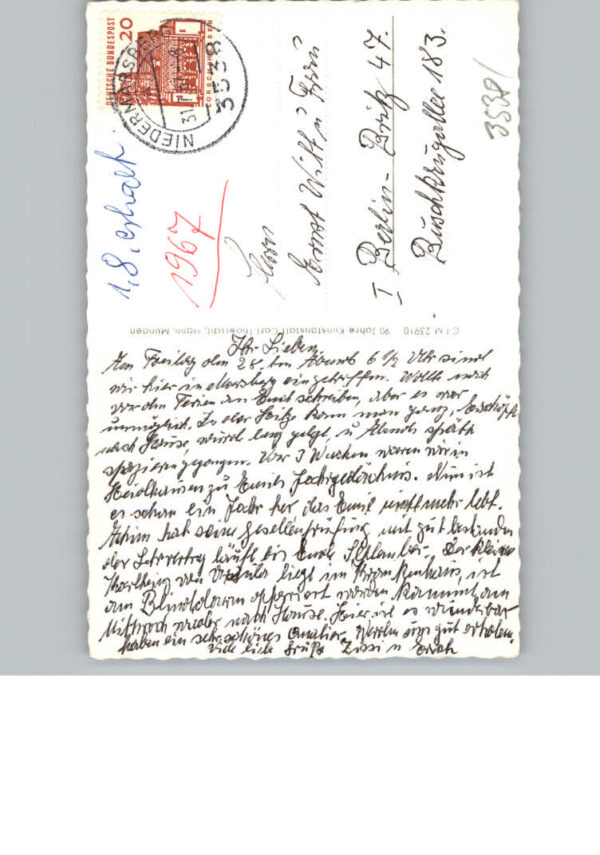 DEUTSCHE BUNDESPOST
20
NIEDERMARSBERG
3538
3538
1,8, erhalt.
1967
Herrn
Ernst Witt u Frau
I Berlin-Britz 47.
Buschkrugallee 183.
C.I.M 23910 90 Jahre Kunstanstalt Carl Thoericht, Hann. Münden
Ihr Lieben
Am Freitag den 28. ten Abends 6 ½ Uhr sind
wir hier in Marsberg eingetroffen. Wollte noch
vor den Ferien an Euch schreiben, aber es war
unmöglich. In der Hitze kam man ganz
nach Hause, wurd lang gelegt, u Abends spät
spazieren gegangen. Vor 3 Wochen waren wir in
zu Emils Jahrgedächnis. Nun ist
es schon ein Jahr her das Emil nicht mehr lebt.
Achim hat seine Gesellenprüfung mit gut bestanden
der Lehrvertrag läuft bis Ende September. Der kleine
von Ursula liegt im Krankenhaus, ist
am Blinddarm operiert worden kommt am
Mittwoch wieder nach Hause. Hier ist es wunderbar
haben ein sehr schönes Quatier. Werden uns gut erholen.
Viele liebe Grüße Zissi u Erich